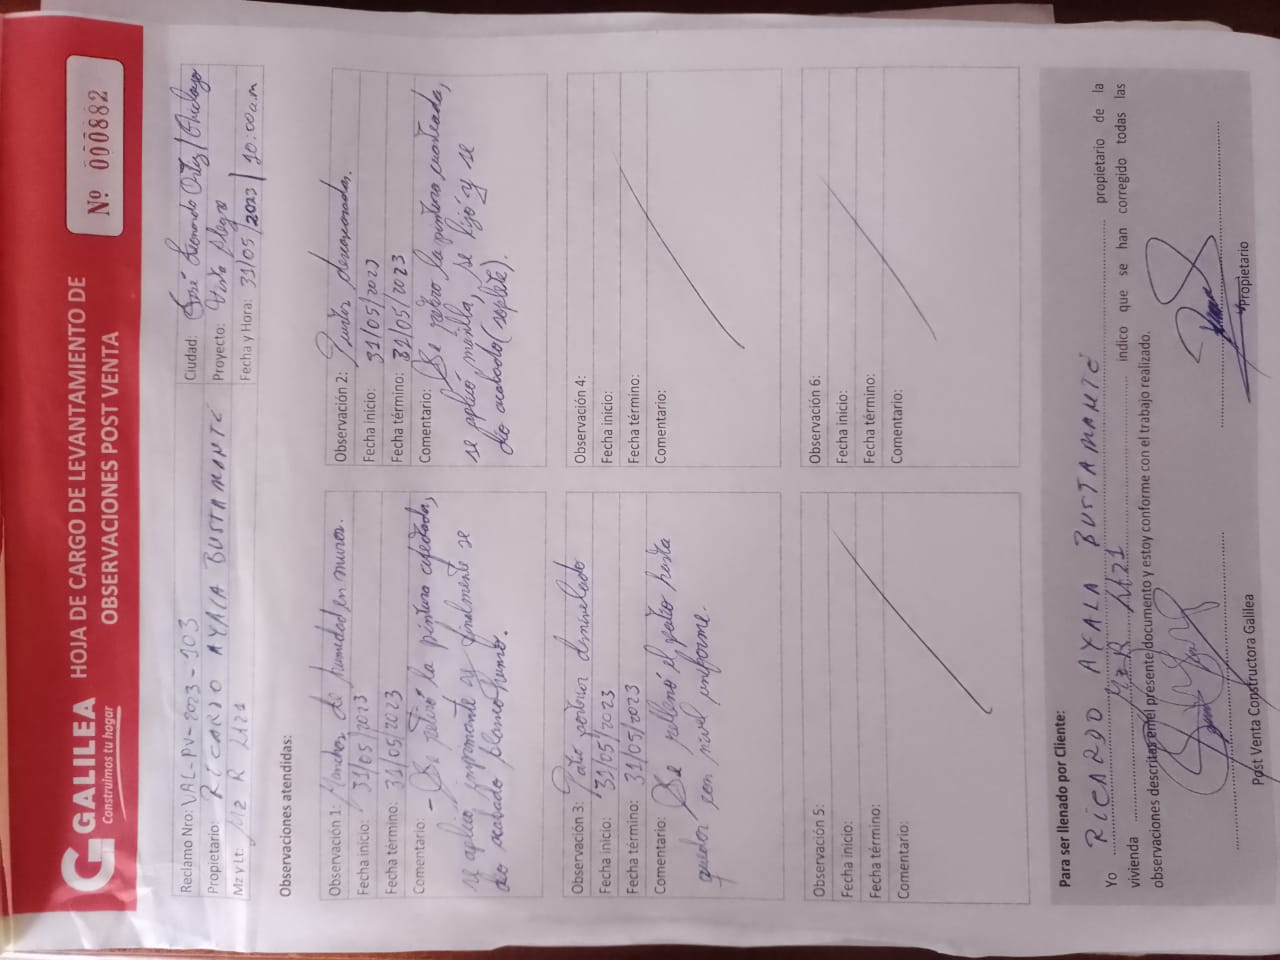 GALILEA
Construimos tu hogar
HOJA DE CARGO DE LEVANTAMIENTO DE
OBSERVACIONES POST VENTA
Nº 000882
Reclamo Nro: VAL-PV-2023-103
Ciudad: José Leonardo Ortiz / Chiclayo
Propietario: RICARDO AYALA BUSTAMANTE
Proyecto: Villa Alegre
Mz y Lt: Mz R Lt21
Fecha y Hora: 31/05/2023 | 10:00a.m
Observaciones atendidas:
Observación 1: Manchas de humedad en muros.
Fecha inicio: 31/05/2023
Fecha término: 31/05/2023
Comentario: - Se retiró la pintura afectada,
se aplicó imprimante y finalmente se
dio acabado blanco humo.
Observación 2: Puertas descascaradas.
Fecha inicio: 31/05/2023
Fecha término: 31/05/2023
Comentario: Se retiro la pintura cuarteada,
se aplicó masilla, se lijó y se
dio acabado (soplete).
Observación 3: Patio posterior desnivelado
Fecha inicio: 31/05/2023
Fecha término: 31/05/2023
Comentario: Se rellenó el patio hasta
quedar con nivel uniforme.
Observación 4:
Fecha inicio:
Fecha término:
Comentario:
Observación 5:
Fecha inicio:
Fecha término:
Comentario:
Observación 6:
Fecha inicio:
Fecha término:
Comentario:
Para ser llenado por Cliente:
Yo RICARDO AYALA BUSTAMANTE propietario de la
vivienda Mz R Lt21 indico que se han corregido todas las
observaciones descritas en el presente documento y estoy conforme con el trabajo realizado.
Post Venta Constructora Galilea
Propietario